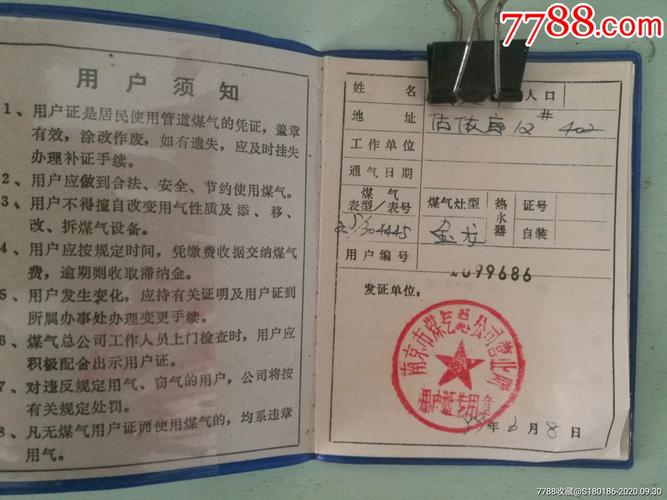 7788.com
用户须知
1、用户证是居民使用管道煤气的凭证，盖章
有效，涂改作废，如有遗失，应及时挂失
办理补证手续。
2、用户应做到合法、安全、节约使用煤气。
3、用户不得擅自改变用气性质及添、移、
改、拆煤气设备。
4、用户应按规定时间，凭缴费收据交纳煤气
费，逾期则收取滞纳金。
5、用户发生变化，应持有关证明及用户证到
所属办事处办理变更手续。
6、煤气总公司工作人员上门检查时，用户应
积极配合出示用户证。
7、对违反规定用气、窃气的用户，公司将按
有关规定处罚。
8、凡无煤气用户证而使用煤气的，均系违章
用气。
姓名 人口
地址 12# 402
工作单位
通气日期
煤气
表型/表号 煤气灶型 热水器 证号
自装
304445 金龙
用户编号 099686
发证单位：
南京市煤气总公司营业所
用户证专用章
年6月8日
7788收藏@S180186-2020.09.30